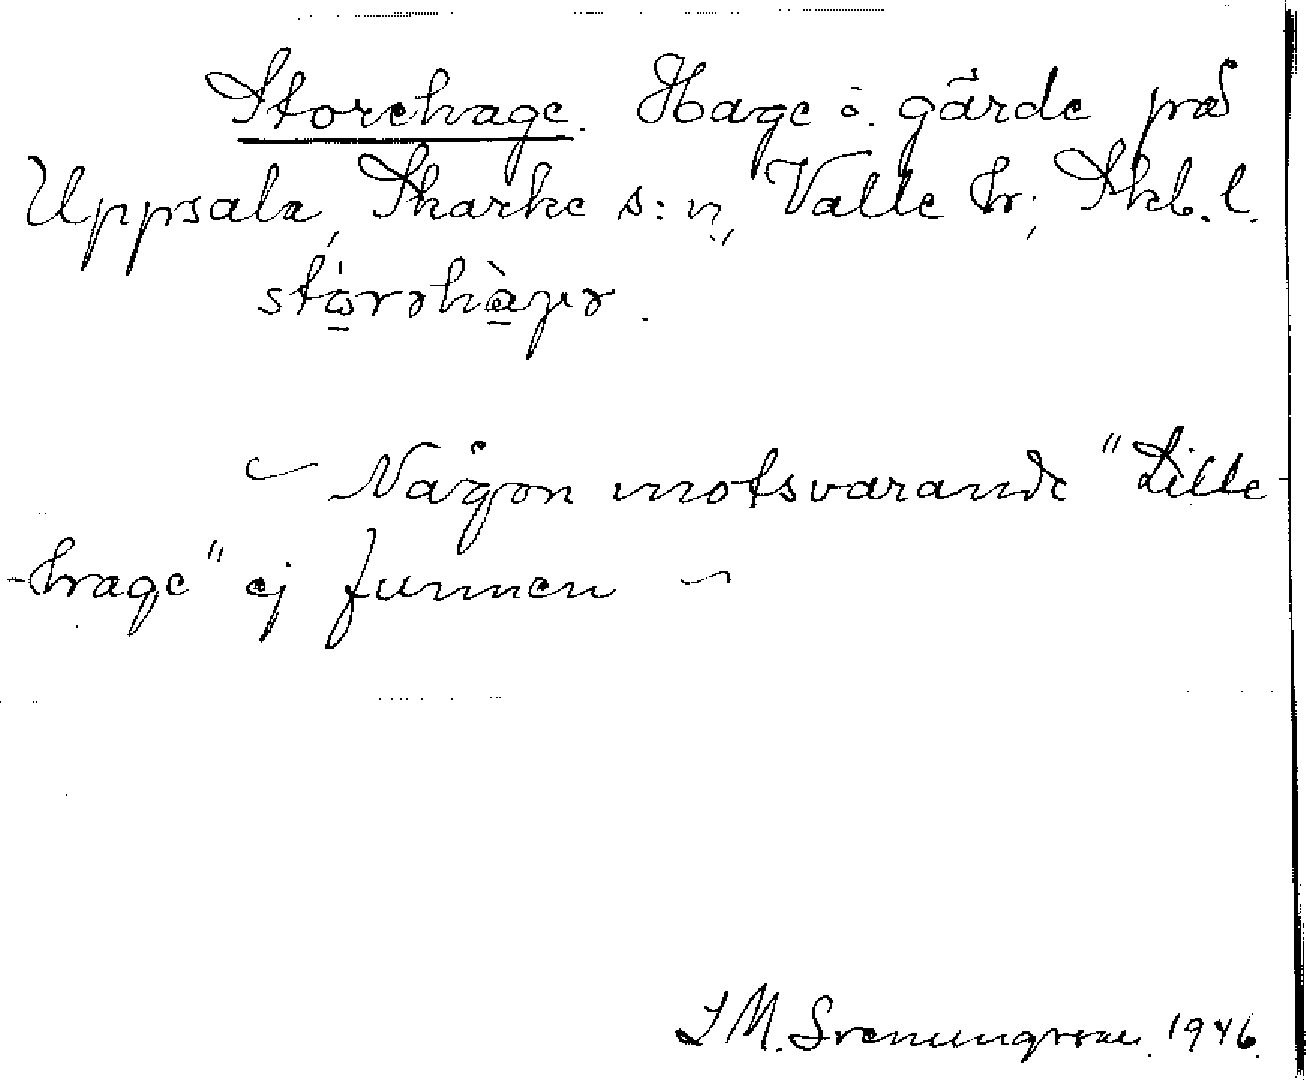 Storehage. Hage o. gärde på
Uppsala, Skarke s:n, Valle hr; Skb. l.
Någon motsvarande "Lille-
-hage" ej funnen
I M. Svenungsson. 1946.